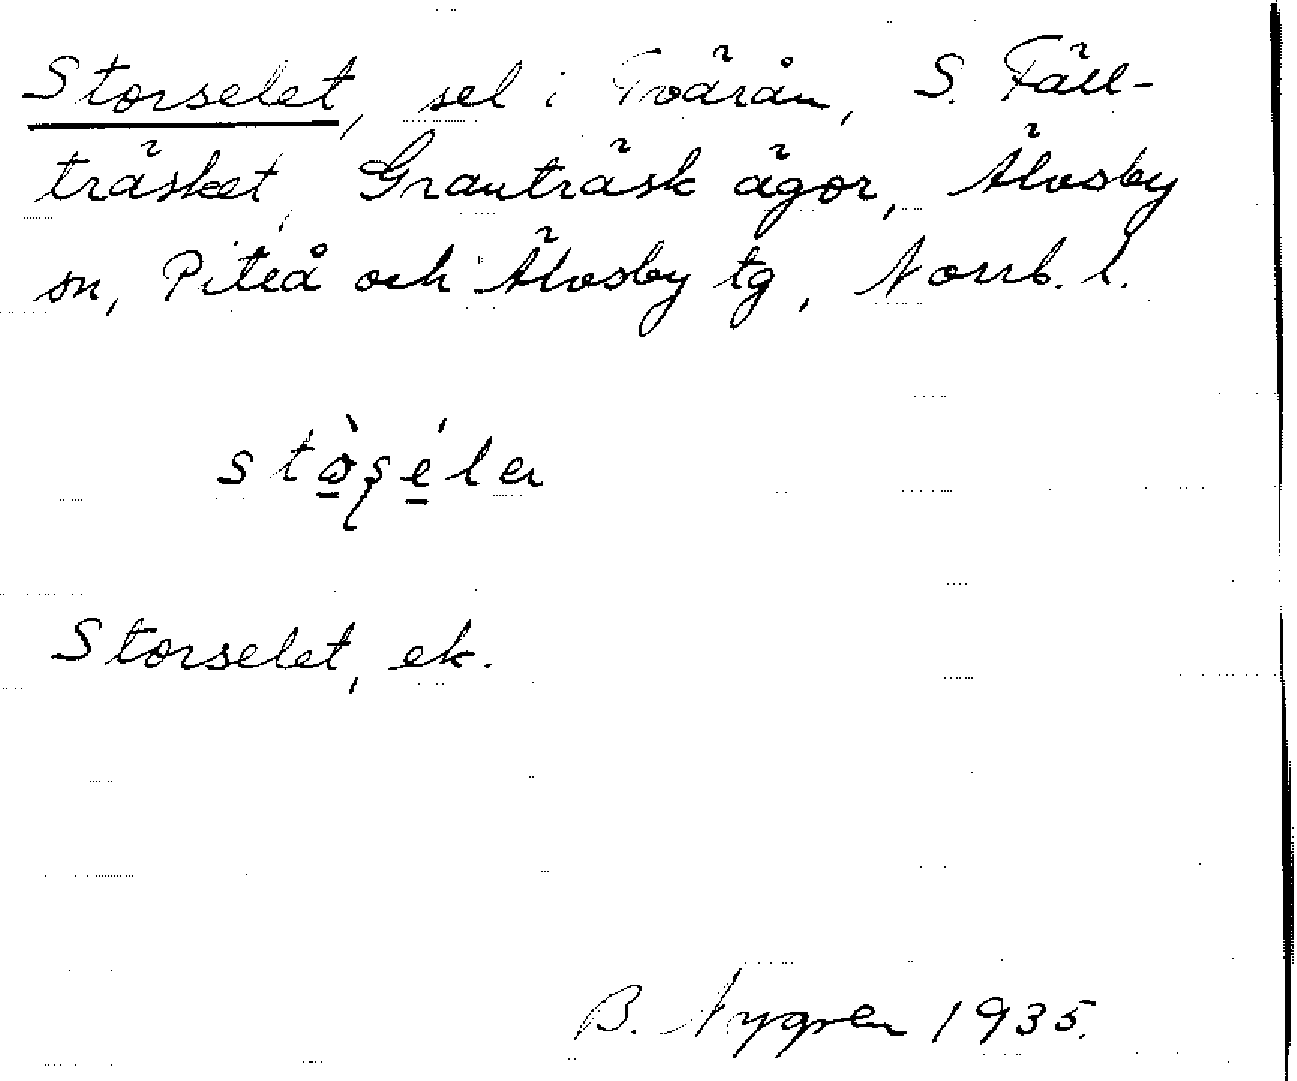 Storselet, sel i Tvärån, S. Fäll-
träsket, Granträsk ägor, Älvsby
sn, Piteå och Älvsby tg, Norrb. l.
Storselet, ek.
B. Nygren 1935.